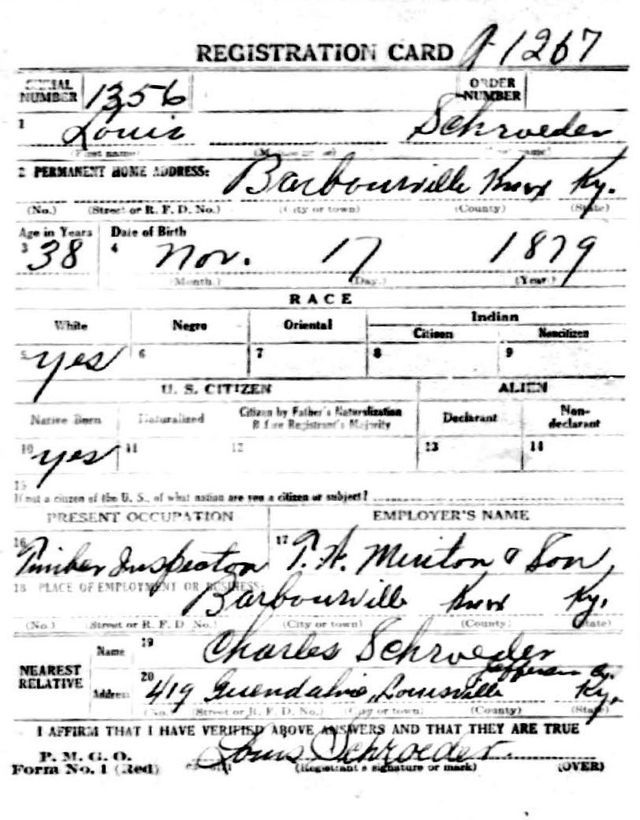 REGISTRATION CARD 1267
SERIAL NUMBER 1356 ORDER NUMBER
1 Louis Schroeder
(First name) (Middle name) (Last name)
2 PERMANENT HOME ADDRESS: Barbourville Knox Ky.
(No.) (Street or R. F. D. No.) (City or town) (County) (State)
Age in Years Date of Birth
3 38 4 Nov. 17 1879
(Month.) (Day.) (Year.)
RACE
White Negro Oriental Indian
Citizen Noncitizen
5 yes 6 7 8 9
U. S. CITIZEN ALIEN
Native Born Naturalized Citizen by Father's Naturalization Before Registrant's Majority Declarant Non-declarant
10 yes 11 12 13 14
15
If not a citizen of the U. S., of what nation are you a citizen or subject?
PRESENT OCCUPATION EMPLOYER'S NAME
16 Timber Inspector 17 T. H. Minton & Son
18 PLACE OF EMPLOYMENT OR BUSINESS:
Barbourville Knox Ky.
(No.) (Street or R. F. D. No.) (City or town) (County) (State)
NEAREST RELATIVE
Name 19 Charles Schroeder
Jefferson Co.
Address 20 419 Louisville Ky.
(No.) (Street or R. F. D. No.) (City or town) (County) (State)
I AFFIRM THAT I HAVE VERIFIED ABOVE ANSWERS AND THAT THEY ARE TRUE
P. M. G. O.
Form No. 1 (Red) Louis Schroeder.
(Registrant's signature or mark) (OVER)